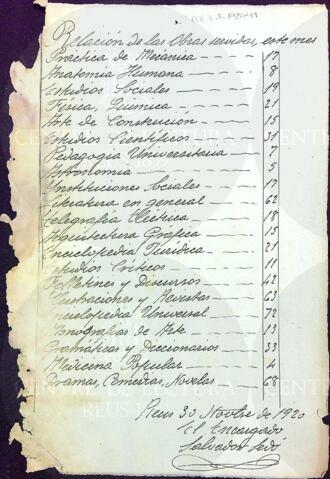 Relación de las Obras servidas, este mes
Práctica de Mecánica — 17
Anatomía Humana — 8
Estudios Sociales — 19
Física, Química — 21
Arte de Construcción — 15
Estudios Científicos — 31
Pedagogía Universitaria — 7
Astronomía — 5
Instituciones Sociales — 17
Literatura en general — 62
Telegrafía Eléctrica — 18
Arquitectura Gráfica — 15
Enciclopedia Jurídica — 21
Estudios Críticos — 11
Folletines y Discursos — 42
Ilustraciones y Revistas — 63
Enciclopedia Universal — 72
Monografías de Arte — 13
Gramáticas y Diccionarios — 33
Medicina Popular — 4
Dramas, Comedias, Novelas — 68
Reus 30 Novbre de 1920
El Encargado
Salvador Sedó
CENTRE DE LECTURA
REUS